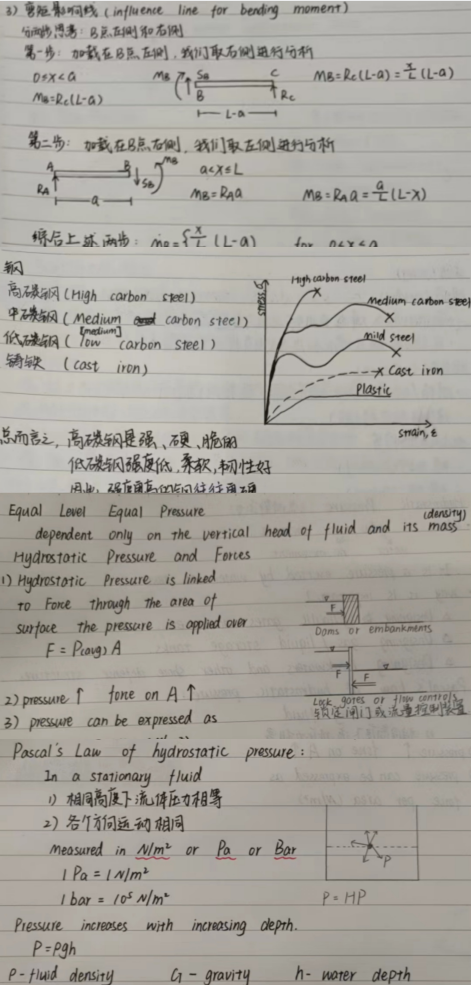 3) 弯矩影响线 (influence line for bending moment)
分两步思考: B点左侧和右侧
第一步: 加载在B点左侧, 我们取右侧进行分析
0≤x<a
MB=Rc(L-a)
MB SB C
B Rc
L-a
MB=Rc(L-a)=x/L(L-a)
第二步: 加载在B点右侧, 我们取左侧进行分析
A B MB
RA SB
a
a<x≤L
MB=RAa
MB=RAa=a/L(L-x)
综合上述两步: MB={x/L(L-a) for 0<x≤a
钢
高碳钢 (High carbon steel)
中碳钢 (Medium carbon steel)
[medium]
低碳钢 (low carbon steel)
铸铁 (cast iron)
stress, σ
High carbon steel
Medium carbon steel
mild steel
Cast iron
Plastic
strain, ε
总而言之, 高碳钢是强、硬、脆的
低碳钢强度低, 柔软, 韧性好
因此, 强度更高的钢往往更硬
Equal Level Equal Pressure
(density)
dependent only on the vertical head of fluid and its mass
Hydrostatic Pressure and Forces
1) Hydrostatic Pressure is linked
to Force through the area of
surface the pressure is applied over
F = P(avg) A
F
Dams or embankments
F
F
Lock gates or flow controls
锁定闸门或流量控制装置
2) pressure ↑ force on A ↑
3) pressure can be expressed as
Pascal's Law of hydrostatic pressure:
In a stationary fluid
1) 相同高度下流体压力相等
2) 各个方向运动相同
Measured in N/m² or Pa or Bar
1 Pa = 1 N/m²
1 bar = 10⁵ N/m²
P
P = HP
Pressure increases with increasing depth.
P=ρgh
ρ-fluid density G - gravity h- water depth